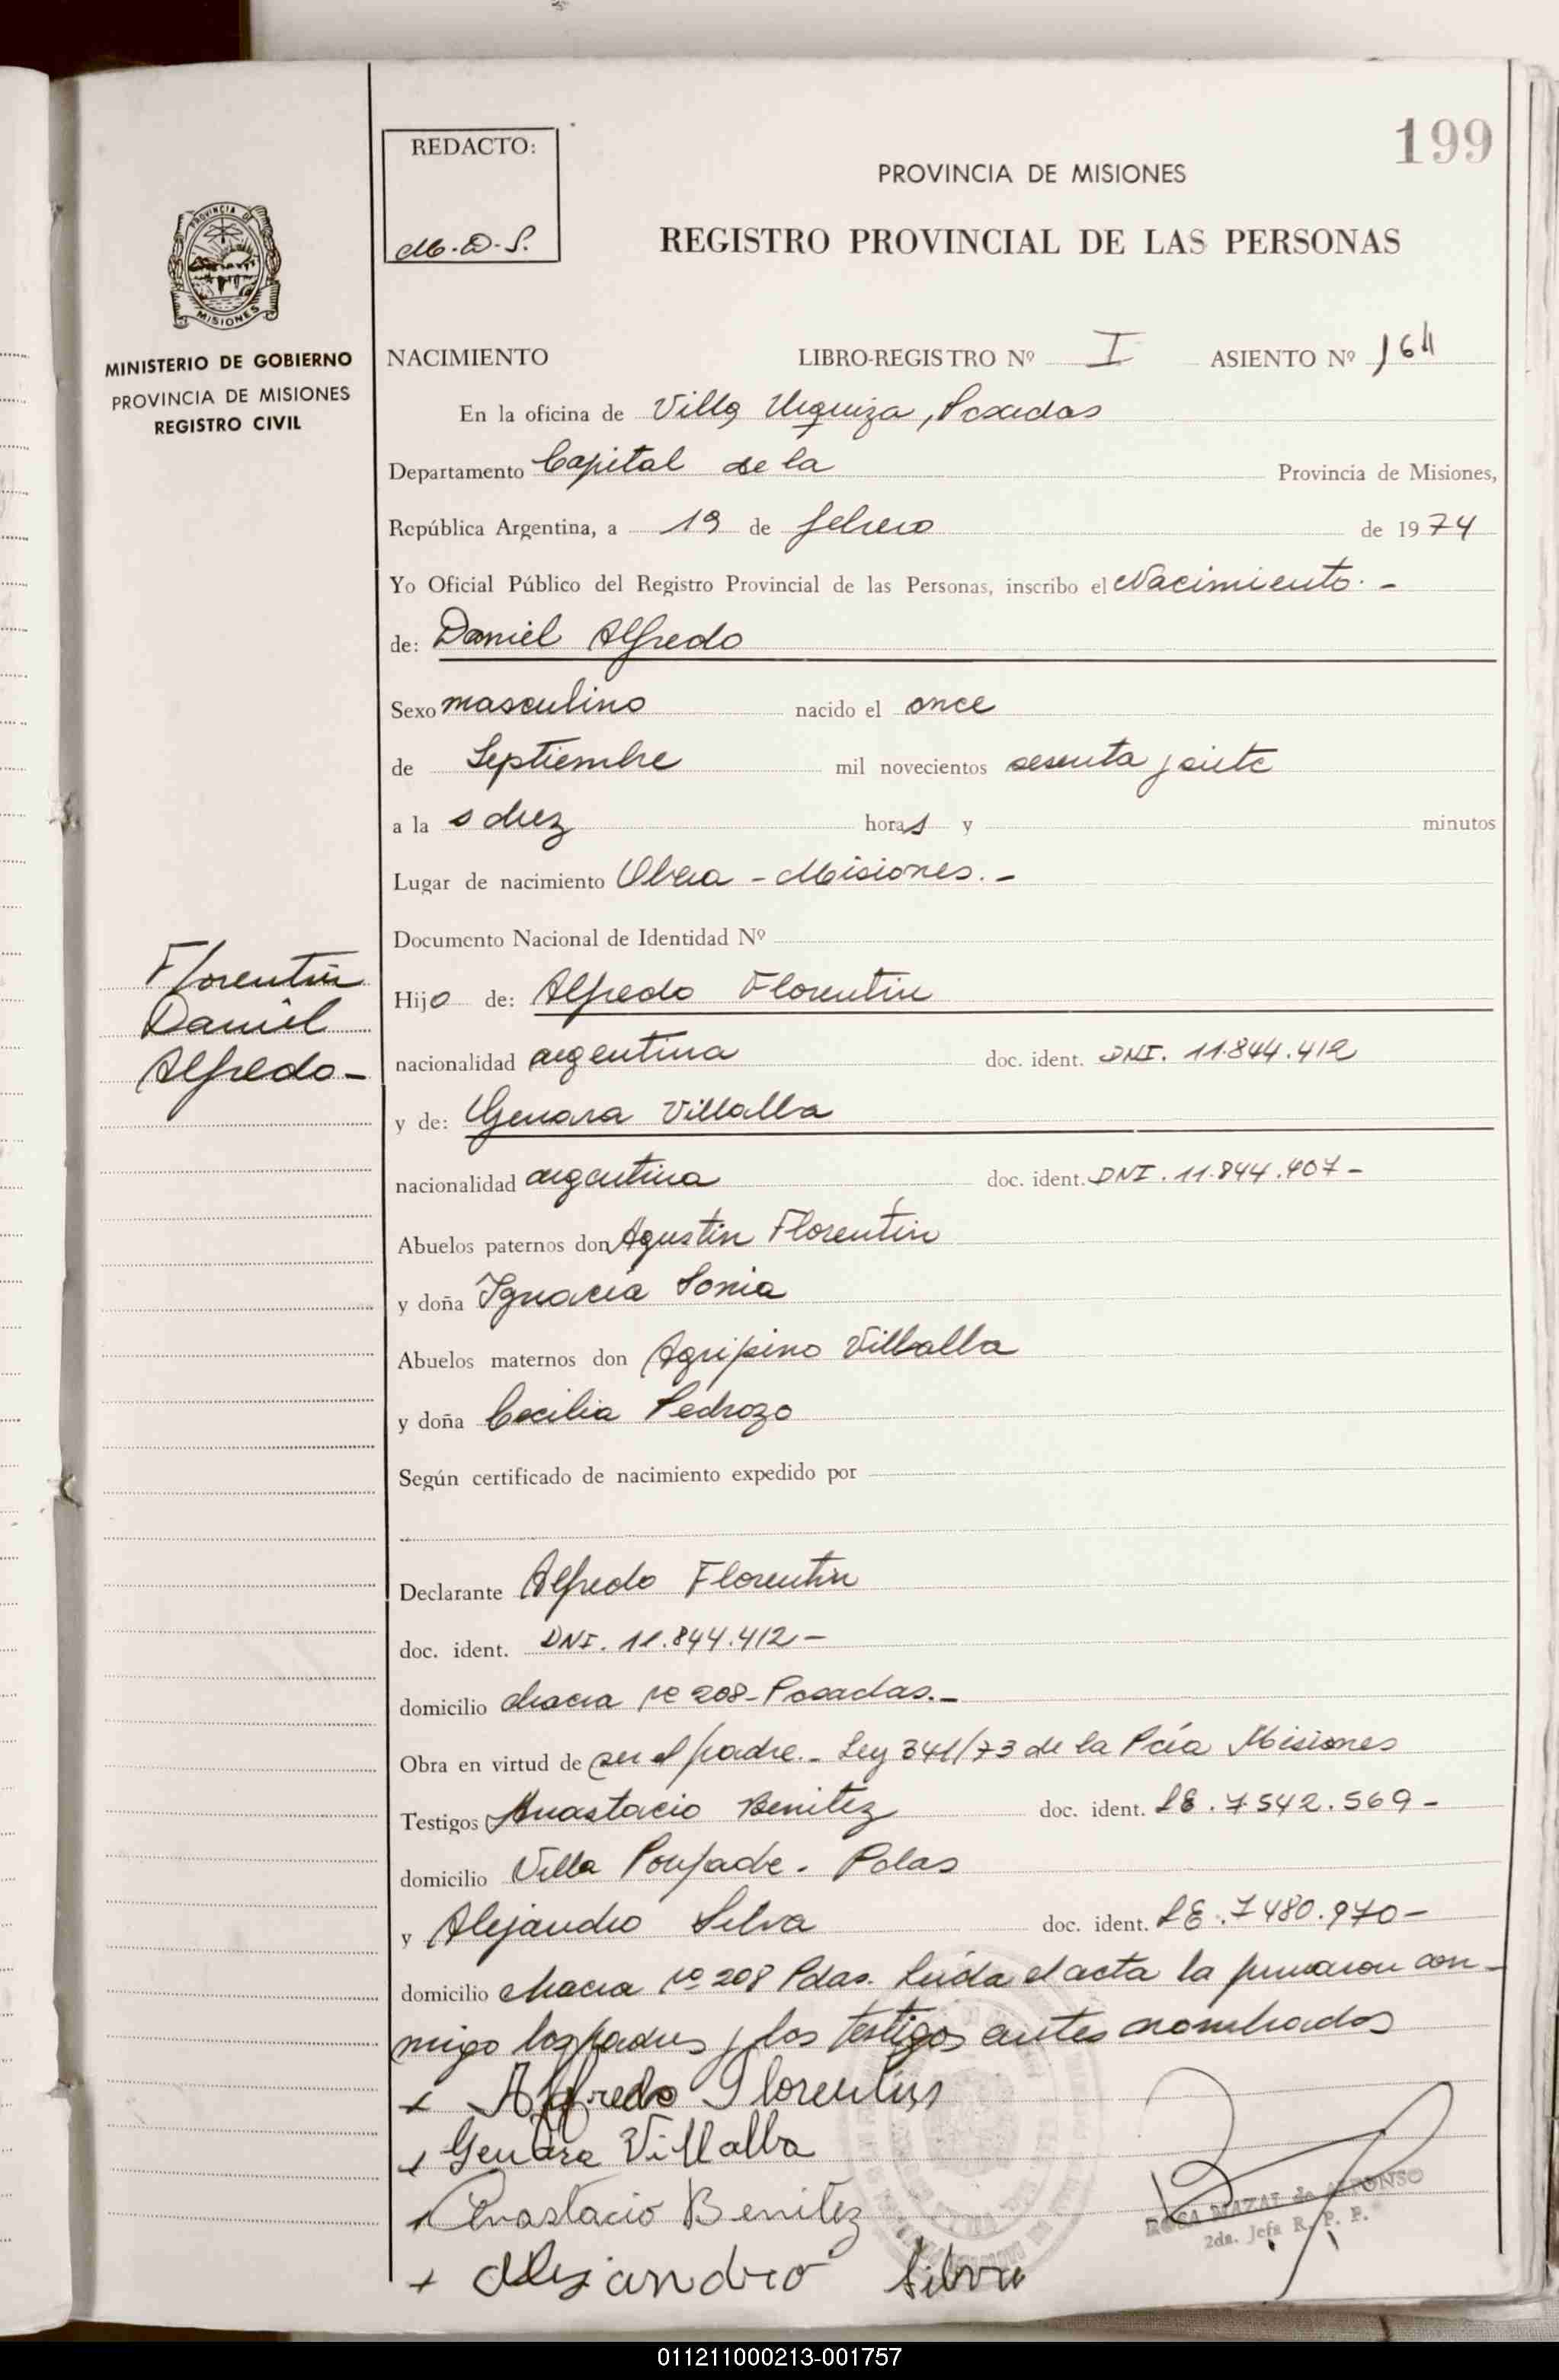 199
REDACTO:
M.D.S.
PROVINCIA DE MISIONES
REGISTRO PROVINCIAL DE LAS PERSONAS
PROVINCIA DE
MISIONES
MINISTERIO DE GOBIERNO
PROVINCIA DE MISIONES
REGISTRO CIVIL
NACIMIENTO LIBRO-REGISTRO Nº I ASIENTO Nº 164
En la oficina de Villa Urquiza, Posadas
Departamento Capital de la Provincia de Misiones,
República Argentina, a 19 de febrero de 1974
Yo Oficial Público del Registro Provincial de las Personas, inscribo el Nacimiento.-
de: Daniel Alfredo
Sexo masculino nacido el once
de Septiembre mil novecientos sesenta y siete
a la s diez horas y minutos
Lugar de nacimiento Obera - Misiones.-
Documento Nacional de Identidad Nº
Florentin
Daniel
Alfredo-
Hijo de: Alfredo Florentin
nacionalidad argentina doc. ident. DNI. 11.844.412
y de: Genara Villalba
nacionalidad argentina doc. ident. DNI. 11.844.407-
Abuelos paternos don Agustin Florentin
y doña Ignacia Sonia
Abuelos maternos don Agripino Villalba
y doña Cecilia Pedrozo
Según certificado de nacimiento expedido por
Declarante Alfredo Florentin
doc. ident. DNI. 11.844.412-
domicilio chacra Nº 208-Posadas.-
Obra en virtud de ser el padre.- Ley 341/73 de la Pcía Misiones
Testigos Anastacio Benitez doc. ident. LE. 7.542.569-
domicilio Villa Poujade. Pdas
y Alejandro Silva doc. ident. LE. 7480.970-
domicilio chacra Nº 208 Pdas. Leida el acta la firmaron con-
migo los padres y los testigos antes nombrados
x Alfredo Florentin
x Genara Villalba
x Anastacio Benitez
x Alejandro Silva
ROSA MAZAL de ALFONSO
2da. Jefa R. P. P.
011211000213-001757